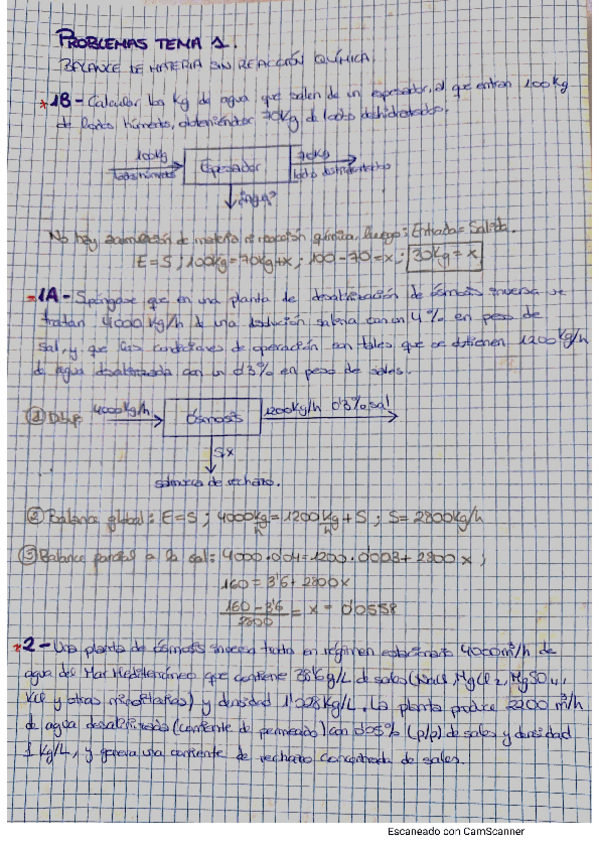 PROBLEMAS TEMA 1.
BALANCE DE MATERIA SIN REACCIÓN QUÍMICA.
*1B - Calcular los Kg de agua que salen de un espesador, al que entran 100Kg
de lodos húmedos, obteniéndose 70Kg de lodo deshidratados.
100Kg
lodos húmedos
Espesador
70Kg
lodo deshidratados
¿agua?
No hay acumulación de materia ni reacción química, luego: Entrada = Salida.
E=S ; 100Kg = 70Kg+x ; 100-70=x ; 30Kg = x
*1A - Supóngase que en una planta de desalinización de ósmosis inversa se
tratan 4000 Kg/h de una disolución salina con un 4% en peso de
sal, y que las condiciones de operación son tales que se obtienen 1200 Kg/h
de agua desalinizada con un 0'3% en peso de sales.
①
4000Kg/h
Ósmosis
1200Kg/h 0'3% sal
S x
salmuera de rechazo.
② Balance global: E=S ; 4000 Kg/h = 1200 Kg/h + S ; S= 2800Kg/h
③ Balance parcial a la sal: 4000·0'04=1200·0'003+2800 x ;
160 = 3'6 + 2800x
160-3'6 / 2800 = x = 0'0558
*2 - Una planta de ósmosis inversa trata en régimen estacionario 4000m³/h de
agua del Mar Mediterráneo que contiene 38'6 g/L de sales (NaCl, MgCl2, MgSO4,
KCl y otras minoritarias) y densidad 1'028Kg/L. La planta produce 2200 m³/h
de agua desalinizada (corriente de permeado) con 0'05% (p/p) de sales y densidad
1 Kg/L, y genera una corriente de rechazo concentrada de sales.
Escaneado con CamScanner